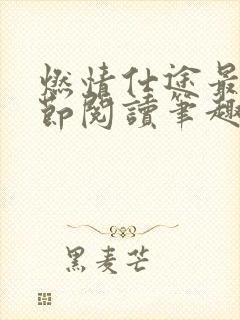 燃情仕途最
節閱讀筆趣
黑麦芒